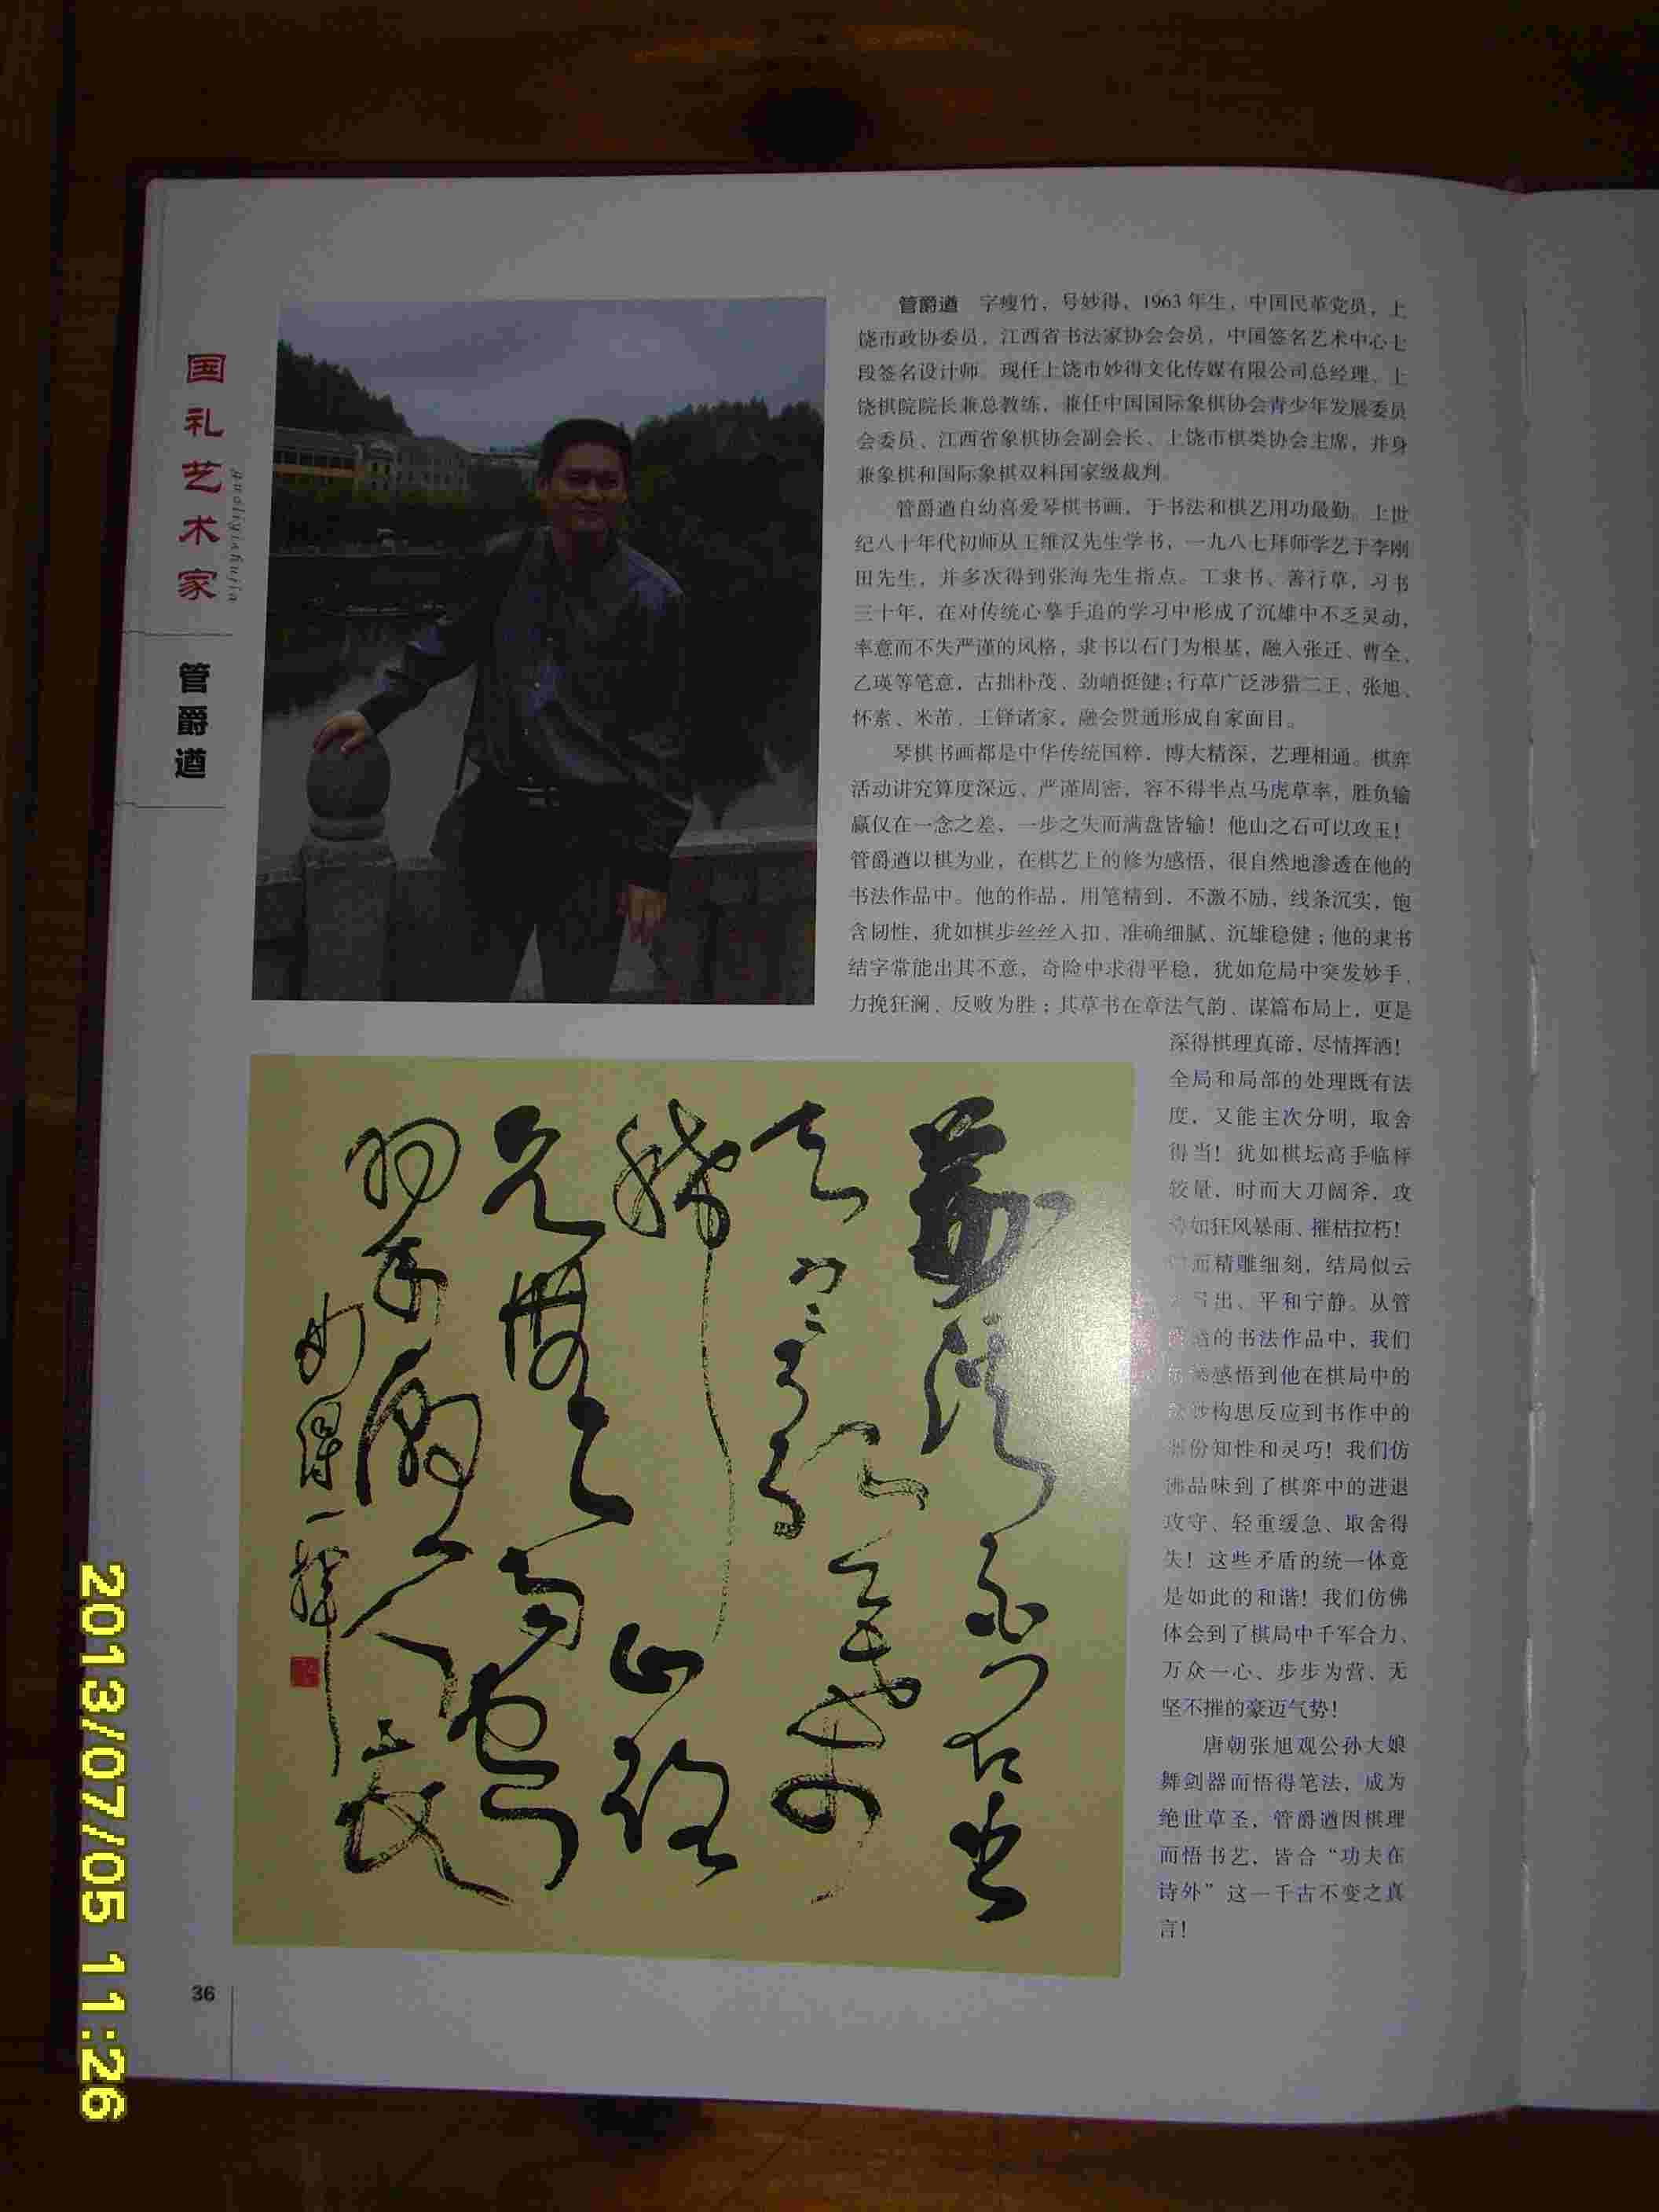 国礼艺术家
guoliyishujia
管爵遒
管爵遒 字瘦竹，号妙得，1963年生，中国民革党员，上
饶市政协委员，江西省书法家协会会员，中国签名艺术中心七
段签名设计师。现任上饶市妙得文化传媒有限公司总经理、上
饶棋院院长兼总教练，兼任中国国际象棋协会青少年发展委员
会委员、江西省象棋协会副会长、上饶市棋类协会主席，并身
兼象棋和国际象棋双料国家级裁判。
管爵遒自幼喜爱琴棋书画，于书法和棋艺用功最勤。上世
纪八十年代初师从王维汉先生学书，一九八七拜师学艺于李刚
田先生，并多次得到张海先生指点。工隶书、善行草，习书
三十年，在对传统心摹手追的学习中形成了沉雄中不乏灵动，
率意而不失严谨的风格，隶书以石门为根基，融入张迁、曹全、
乙瑛等笔意，古拙朴茂、劲峭挺健；行草广泛涉猎二王、张旭、
怀素、米芾、王铎诸家，融会贯通形成自家面目。
琴棋书画都是中华传统国粹，博大精深，艺理相通。棋弈
活动讲究算度深远、严谨周密，容不得半点马虎草率，胜负输
赢仅在一念之差，一步之失而满盘皆输！他山之石可以攻玉！
管爵遒以棋为业，在棋艺上的修为感悟，很自然地渗透在他的
书法作品中。他的作品，用笔精到，不激不励，线条沉实，饱
含韧性，犹如棋步丝丝入扣、准确细腻、沉雄稳健；他的隶书
结字常能出其不意，奇险中求得平稳，犹如危局中突发妙手，
力挽狂澜、反败为胜；其草书在章法气韵、谋篇布局上，更是
深得棋理真谛，尽情挥洒！
全局和局部的处理既有法
度，又能主次分明，取舍
得当！犹如棋坛高手临枰
较量，时而大刀阔斧，攻
如狂风暴雨、摧枯拉朽！
而精雕细刻，结局似云
出、平和宁静。从管
的书法作品中，我们
感悟到他在棋局中的
构思反应到书作中的
份知性和灵巧！我们仿
佛品味到了棋弈中的进退
攻守、轻重缓急、取舍得
失！这些矛盾的统一体竟
是如此的和谐！我们仿佛
体会到了棋局中千军合力、
万众一心、步步为营、无
坚不摧的豪迈气势！
唐朝张旭观公孙大娘
舞剑器而悟得笔法，成为
绝世草圣，管爵遒因棋理
而悟书艺，皆合“功夫在
诗外”这一千古不变之真
言！
36
2013/07/05 11:26